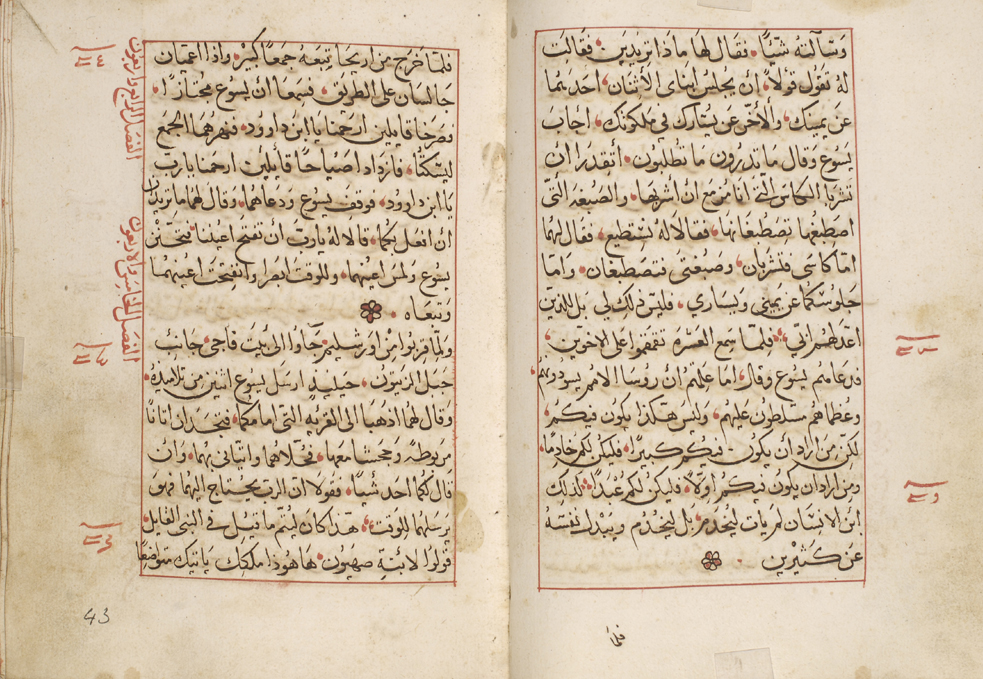 وسألته شيئاً. فقال لها ماذا تريدين. فقالت
له تقول قولاً. ان يجلس ابناي الاثنان احدهما
عن يمينك. والآخر عن يسارك في ملكوتك. اجاب
يسوع وقال ما تدرون ما تطلبون. أتقدرا ان
تشربا الكاس التي انا مزمع ان اشربها. والصبغه التي
اصطبغها تصطبغانها. فقالا له نستطيع. فقال لهما
اما كاسي فتشربان. وصبغتي تصطبغان. واما
جلوسكما عن يميني ويساري. فليس ذلك لي بل للذين
اعد لهم ابي. فلما سمع العشرة تقمقموا على الاخوين.
فدعاهم يسوع وقال. اما علمتم أن روسا الامم يسودونهم
وعظماهم متسلطون عليهم. وليس هكذا يكون فيكم.
لكن من اراد ان يكون فيكم كبيراً. فليكن لكم خادماً.
ومن اراد ان يكون فيكم اولاً. فليكن لكم عبداً. كذلك
ابن الانسان لم يات ليخدم. بل ليخدم ويبذل نفسه
عن كثيرين
فلما
فلما خرج من اريحا تبعه جمعاً كبير. واذا اعميان
جالسان على الطريق. فسمعا أن يسوع مجتازا.
فصرخا قايلين ارحمنا يا ابن داوود. فنهرهما الجمع
ليسكتا. فازدادا صياحاً قايلين ارحمنا يارب
يا ابن داوود. فوقف يسوع ودعاهما. وقال لهما ما تريدان
أن افعل بكما. قالا له يارب أن تفتح اعيننا. فتحنن
يسوع ولمس اعينهما. وللوقت ابصرا وانفتحت اعينهما
وتبعاه.
ولما قربوا من اورشليم. جاوا الى بيت فاجي. جانب
جبل الزيتون. حينيذ ارسل يسوع اثنين من تلاميذه.
وقال لهما اذهبا الى القرية التي امامكما. فتجدان اتانا
مربوطة. وجحشا معها. فحلاهما واتياني بهما. وان
قال لكما احد شياً. فقولا ان الرب يحتاج اليهما فهو
يرسلهما للوقت. هذا كان ليتم ما قيل في النبي القايل.
قولوا لابنة صهيون. ها هوذا ملكك ياتيك متواضعاً
الفصل الرابع والاربعون
الفصل الخامس والاربعون
43